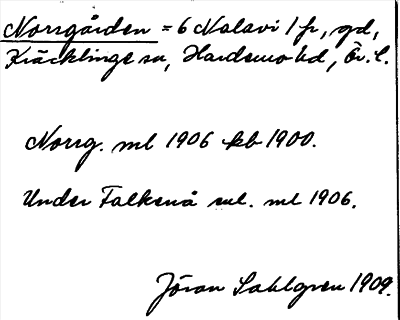 Norrgården = 6 Nalavi 1 fr, gd,
Kräcklinge sn, Hardemo hd, Ör. l.
Norrg. ml 1906 kb 1900.
Under Falkenå enl. ml 1906.
Jöran Sahlgren 1909.